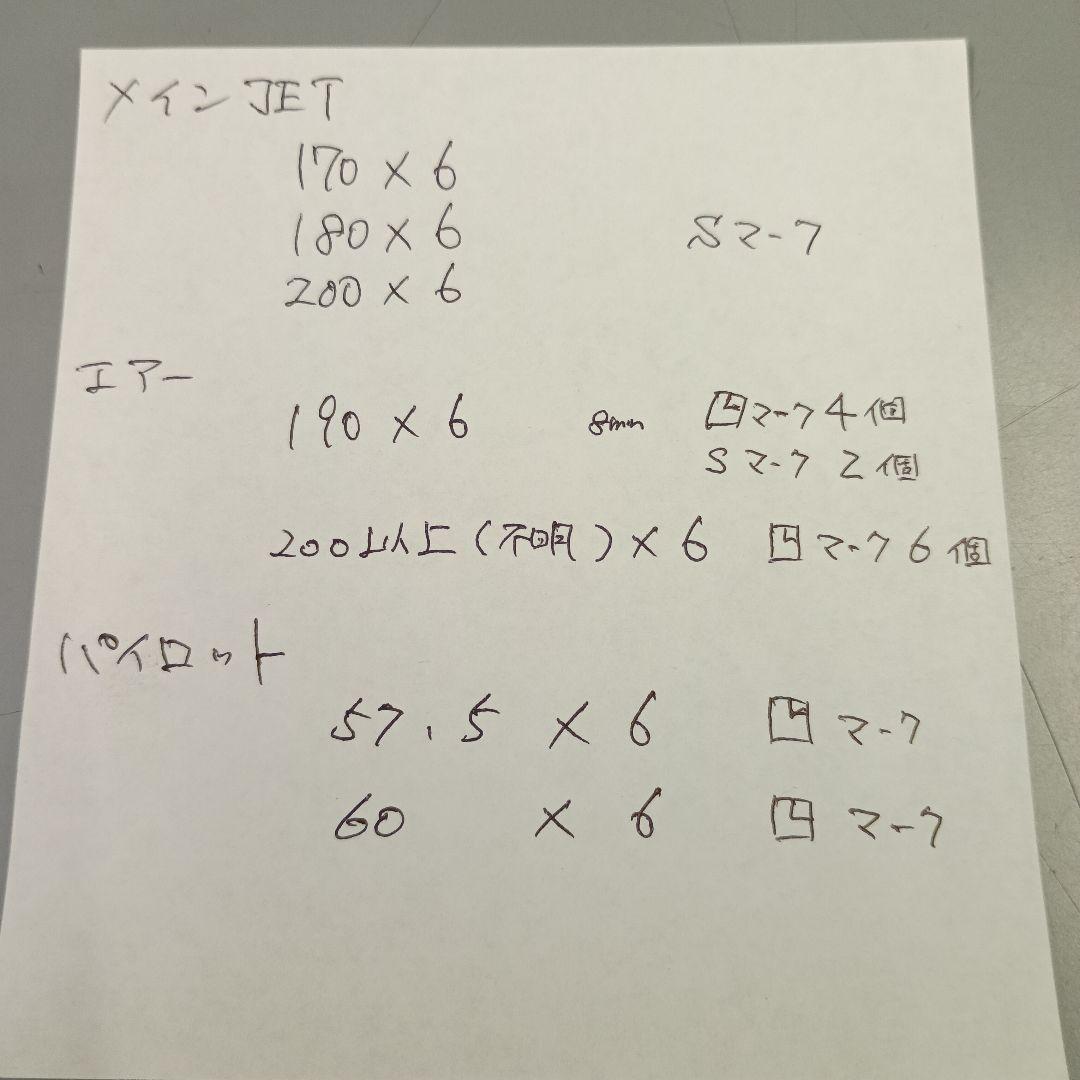 メインJET
170 × 6
180 × 6 Sマーク
200 × 6
エアー
190 × 6 8mm マーク4個
Sマーク 2個
200以上(不明) × 6 マーク6個
パイロット
57.5 × 6 マーク
60 × 6 マーク